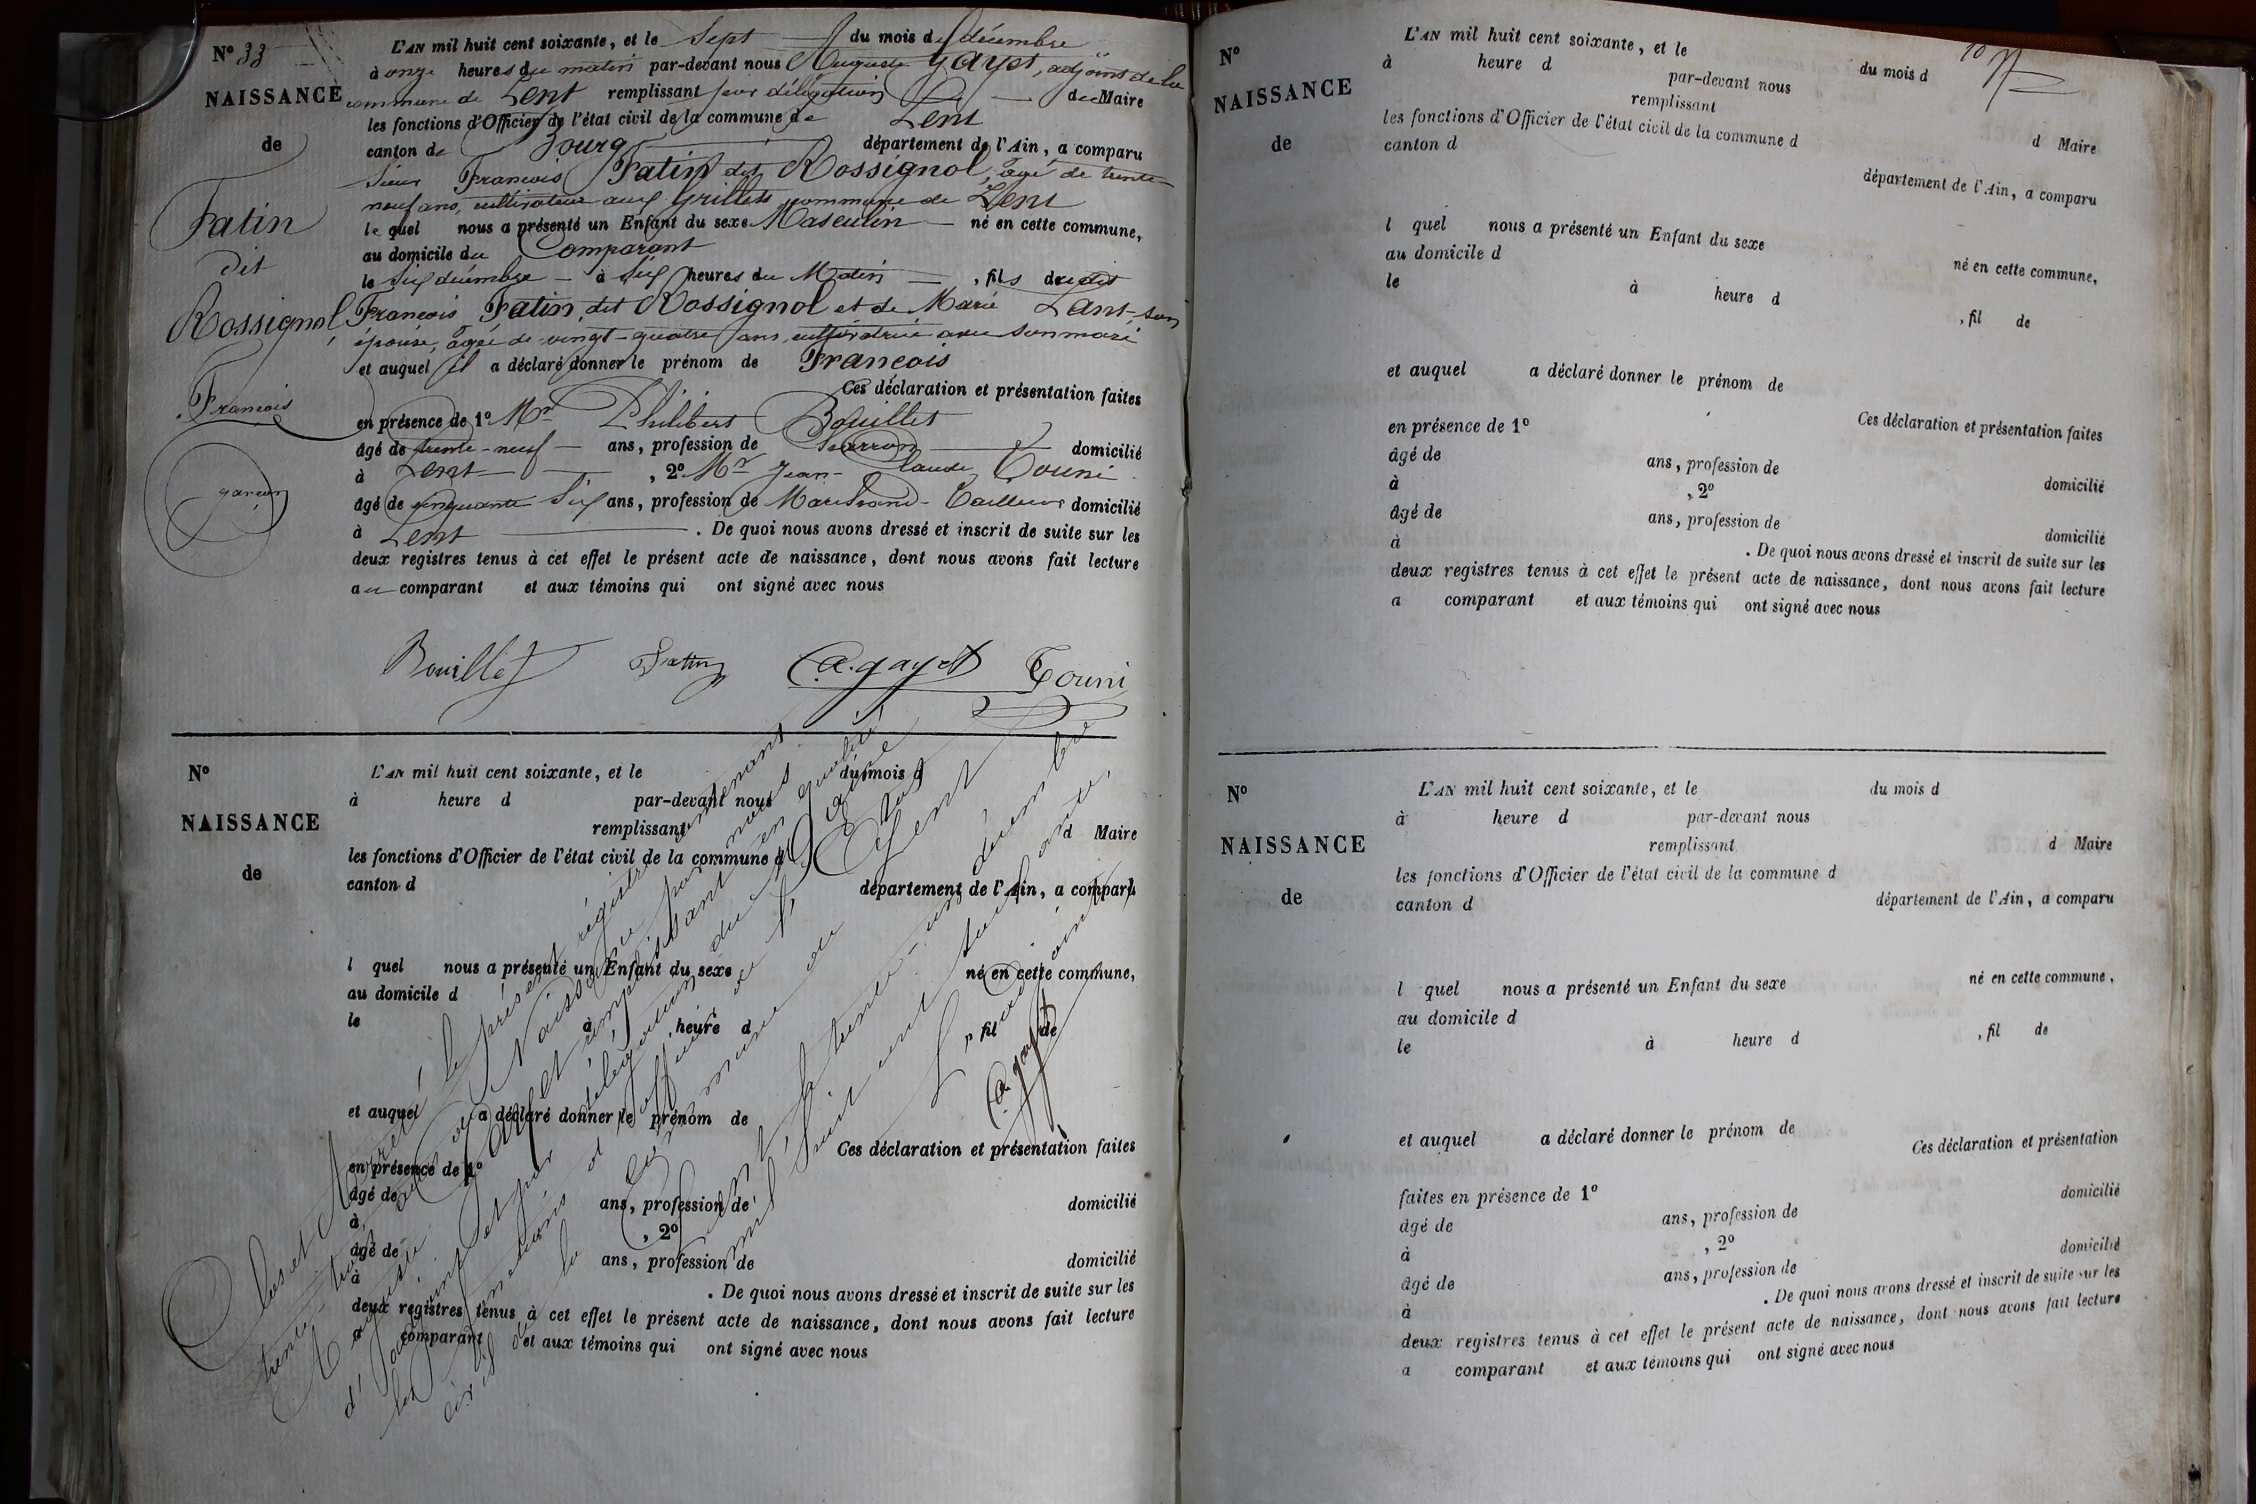 N° 33
NAISSANCE
de
Fatin
dit
Rossignol,
Francois
garçon
L'AN mil huit cent soixante, et le Sept du mois de décembre
à onze heures du matin par-devant nous Auguste Gayet, adjoint de la
commune de Lent remplissant par délégation du Maire
les fonctions d'Officier de l'état civil de la commune de Lent
canton de Bourg département de l'Ain, a comparu
Sieur Francois Fatin dit Rossignol, âgé de trente-
neuf ans, cultivateur aux Grillets commune de Lent
lequel nous a présenté un Enfant du sexe Masculin né en cette commune,
au domicile du Comparant
le Six décembre à Six heures du Matin, fils dudit
Francois Fatin, dit Rossignol et de Marie Lant, son
épouse, âgée de vingt-quatre ans, cultivatrice avec son mari
et auquel il a déclaré donner le prénom de Francois
Ces déclaration et présentation faites
en présence de 1° Mr Philibert Bouillet
âgé de trente-neuf ans, profession de domicilié
à Lent, 2° Mr Jean-Claude Touni
âgé de cinquante Six ans, profession de Marchand-Tailleur domicilié
à Lent. De quoi nous avons dressé et inscrit de suite sur les
deux registres tenus à cet effet le présent acte de naissance, dont nous avons fait lecture
au comparant et aux témoins qui ont signé avec nous
Bouillet Fatin A. gayet Touni
N°
NAISSANCE
de
L'AN mil huit cent soixante, et le du mois d
à heure d par-devant nous
remplissant d Maire
les fonctions d'Officier de l'état civil de la commune d
canton d département de l'Ain, a comparu
l quel nous a présenté un Enfant du sexe né en cette commune,
au domicile d
le à heure d , fil de
et auquel a déclaré donner le prénom de
Ces déclaration et présentation faites
en présence de 1°
âgé de ans, profession de domicilié
à , 2°
âgé de ans, profession de domicilié
à . De quoi nous avons dressé et inscrit de suite sur les
deux registres tenus à cet effet le présent acte de naissance, dont nous avons fait lecture
a comparant et aux témoins qui ont signé avec nous
Clos et Arrêté le présent régistre contenant
trente-trois actes de Naissance par nous
Auguste Gayet remplissant en qualité
d'adjoint et par délégation du Maire
les fonctions d'officier de l'Etat
civil de la commune de Lent
à Lent le trente-un décembre
mil huit cent soixante,
L'adjoint,
A. gayet
N°
NAISSANCE
de
L'AN mil huit cent soixante, et le du mois d
à heure d par-devant nous
remplissant d Maire
les fonctions d'Officier de l'état civil de la commune d
canton d département de l'Ain, a comparu
l quel nous a présenté un Enfant du sexe né en cette commune,
au domicile d
le à heure d , fil de
et auquel a déclaré donner le prénom de
Ces déclaration et présentation faites
en présence de 1°
âgé de ans, profession de domicilié
à , 2°
âgé de ans, profession de domicilié
à . De quoi nous avons dressé et inscrit de suite sur les
deux registres tenus à cet effet le présent acte de naissance, dont nous avons fait lecture
a comparant et aux témoins qui ont signé avec nous
N°
NAISSANCE
de
L'AN mil huit cent soixante, et le du mois d
à heure d par-devant nous
remplissant d Maire
les fonctions d'Officier de l'état civil de la commune d
canton d département de l'Ain, a comparu
l quel nous a présenté un Enfant du sexe né en cette commune,
au domicile d
le à heure d , fil de
et auquel a déclaré donner le prénom de
Ces déclaration et présentation
faites en présence de 1°
âgé de ans, profession de domicilié
à , 2°
âgé de ans, profession de domicilié
à . De quoi nous avons dressé et inscrit de suite sur les
deux registres tenus à cet effet le présent acte de naissance, dont nous avons fait lecture
a comparant et aux témoins qui ont signé avec nous